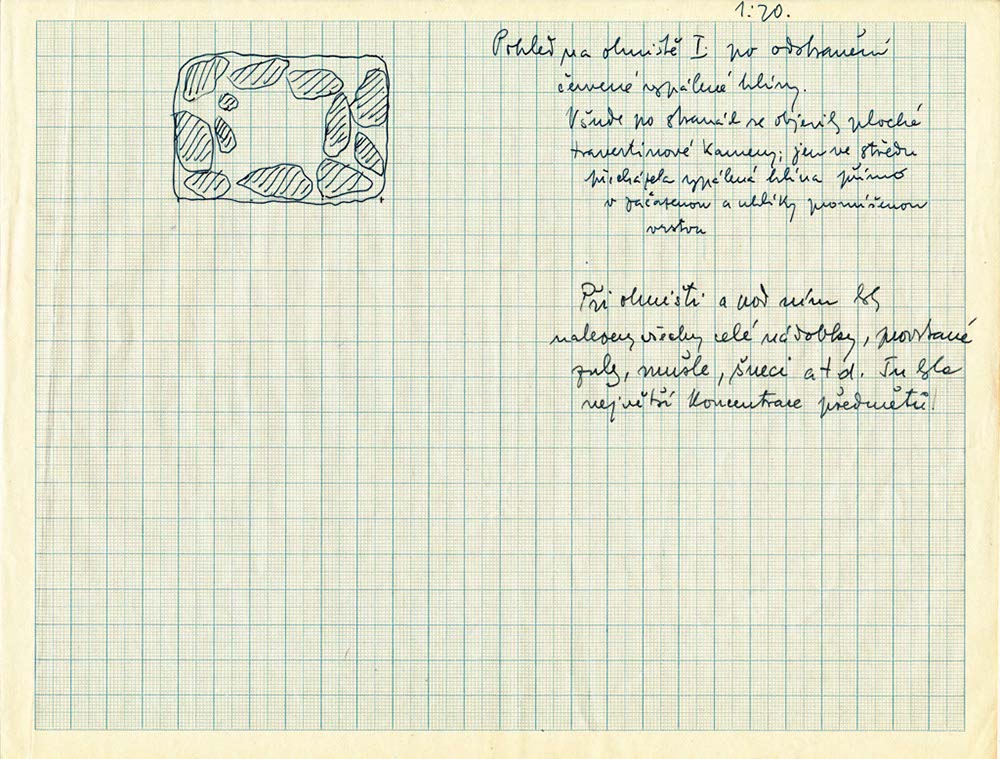 1:20.
Pohled na ohniště I. po odstranění
červené vypálené hlíny.
Všude po stranách se objevily ploché
travertinové kameny; jen ve středu
přecházela vypálená hlína přímo
v začazenou a uhlíky promíšenou
vrstvu
Při ohništi a pod ním byly
nalezeny všechny celé nádobky, provrtané
zuby, mušle, šneci atd. Tu byla
největší koncentrace předmětů!